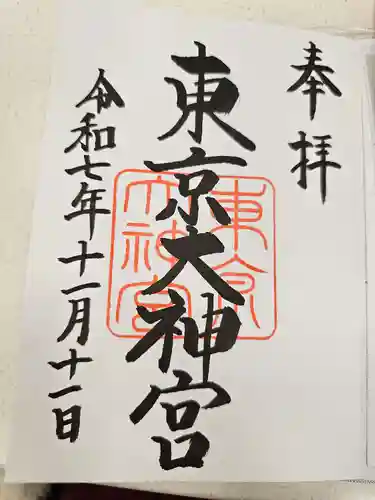 奉拝
東京大神宮
東京
大神宮
令和七年十一月十一日